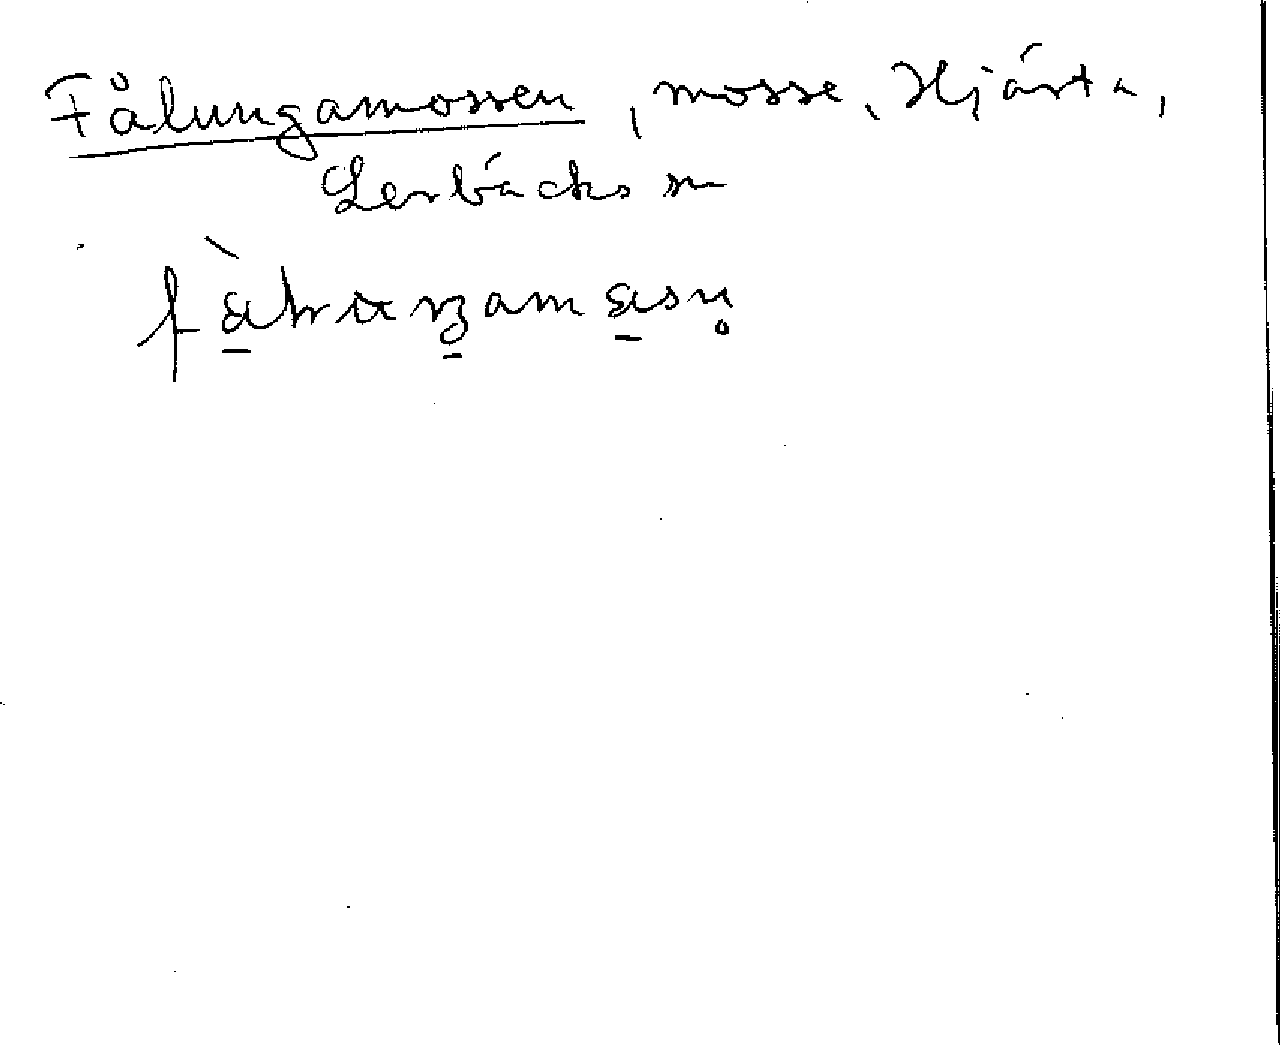 Fålungamossen, mosse, Hjärta,
Lerbäcks sn